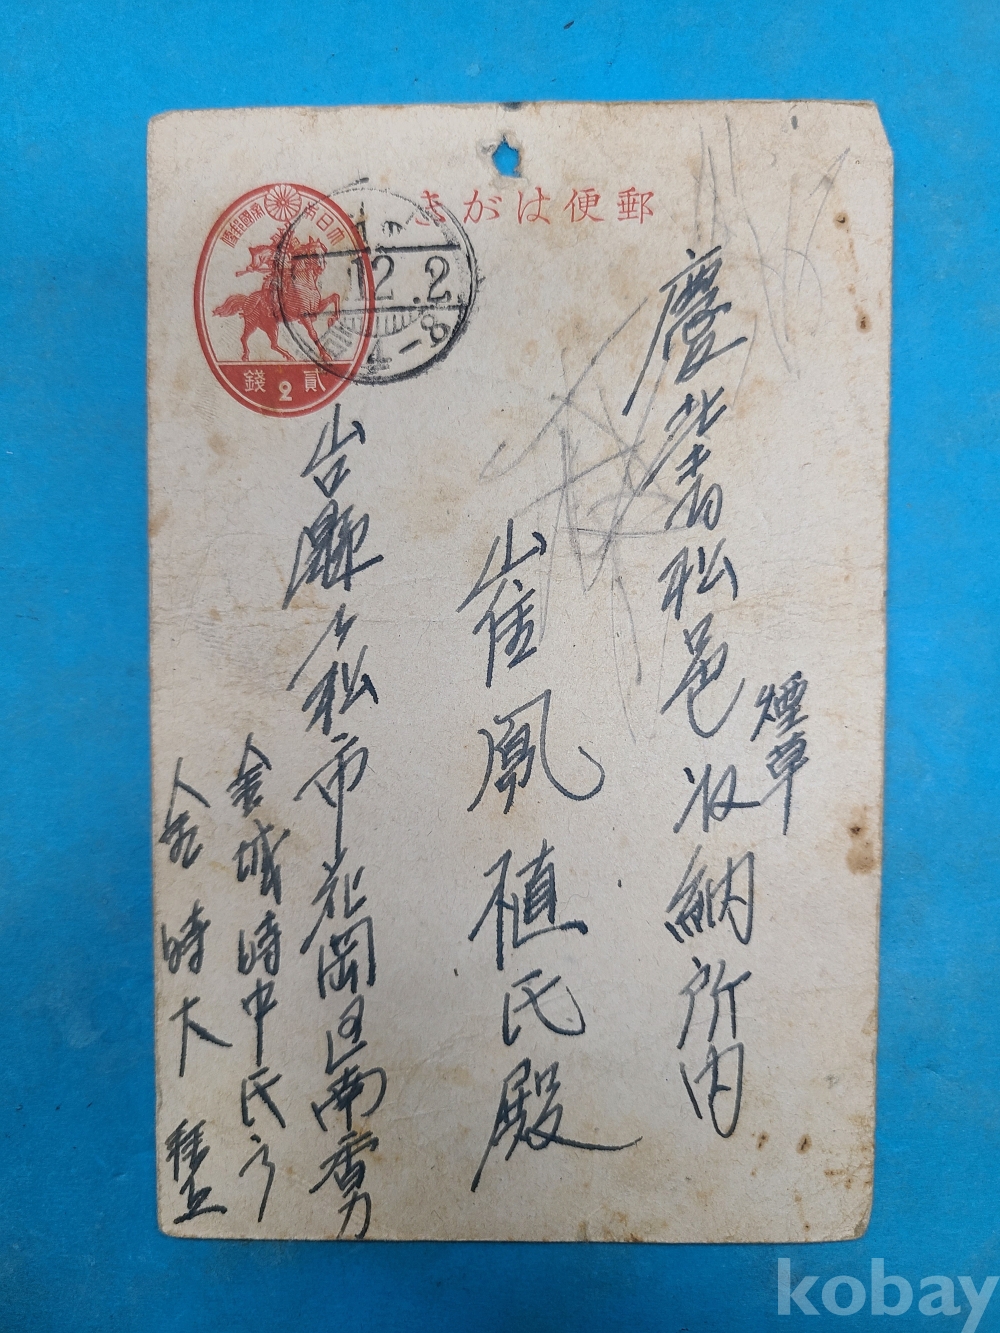 郵便はがき
大日本帝國郵便
貳2錢
12.2
4-8
慶北青松邑
煙草
收納所内
崔鳳植氏殿
台縣
松市花岡区南
金城時中氏方
金時大 拜上
kobay